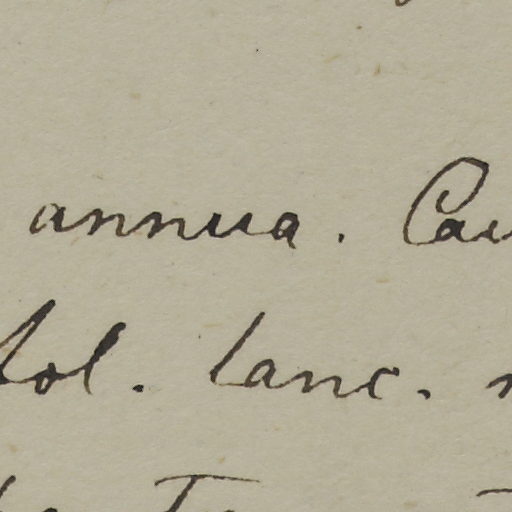 annua. Cau
fol. lanc.